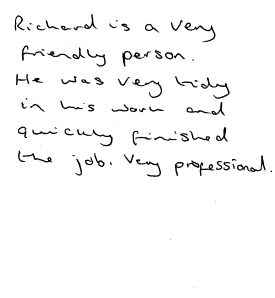 Richard is a very
friendly person.
He was very tidy
in his work and
quickly finished
the job. Very professional.